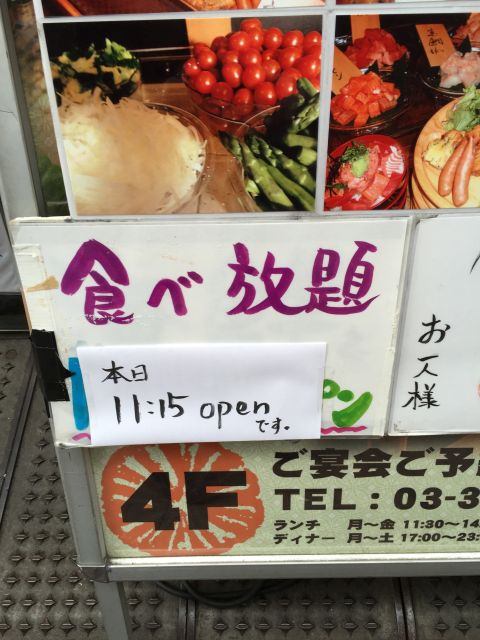 食べ放題
本日
11:15 open
です。
プン
お一人様
4F
ご宴会ご予
TEL : 03-3
ランチ 月～金 11:30～14
ディナー 月～土 17:00～23